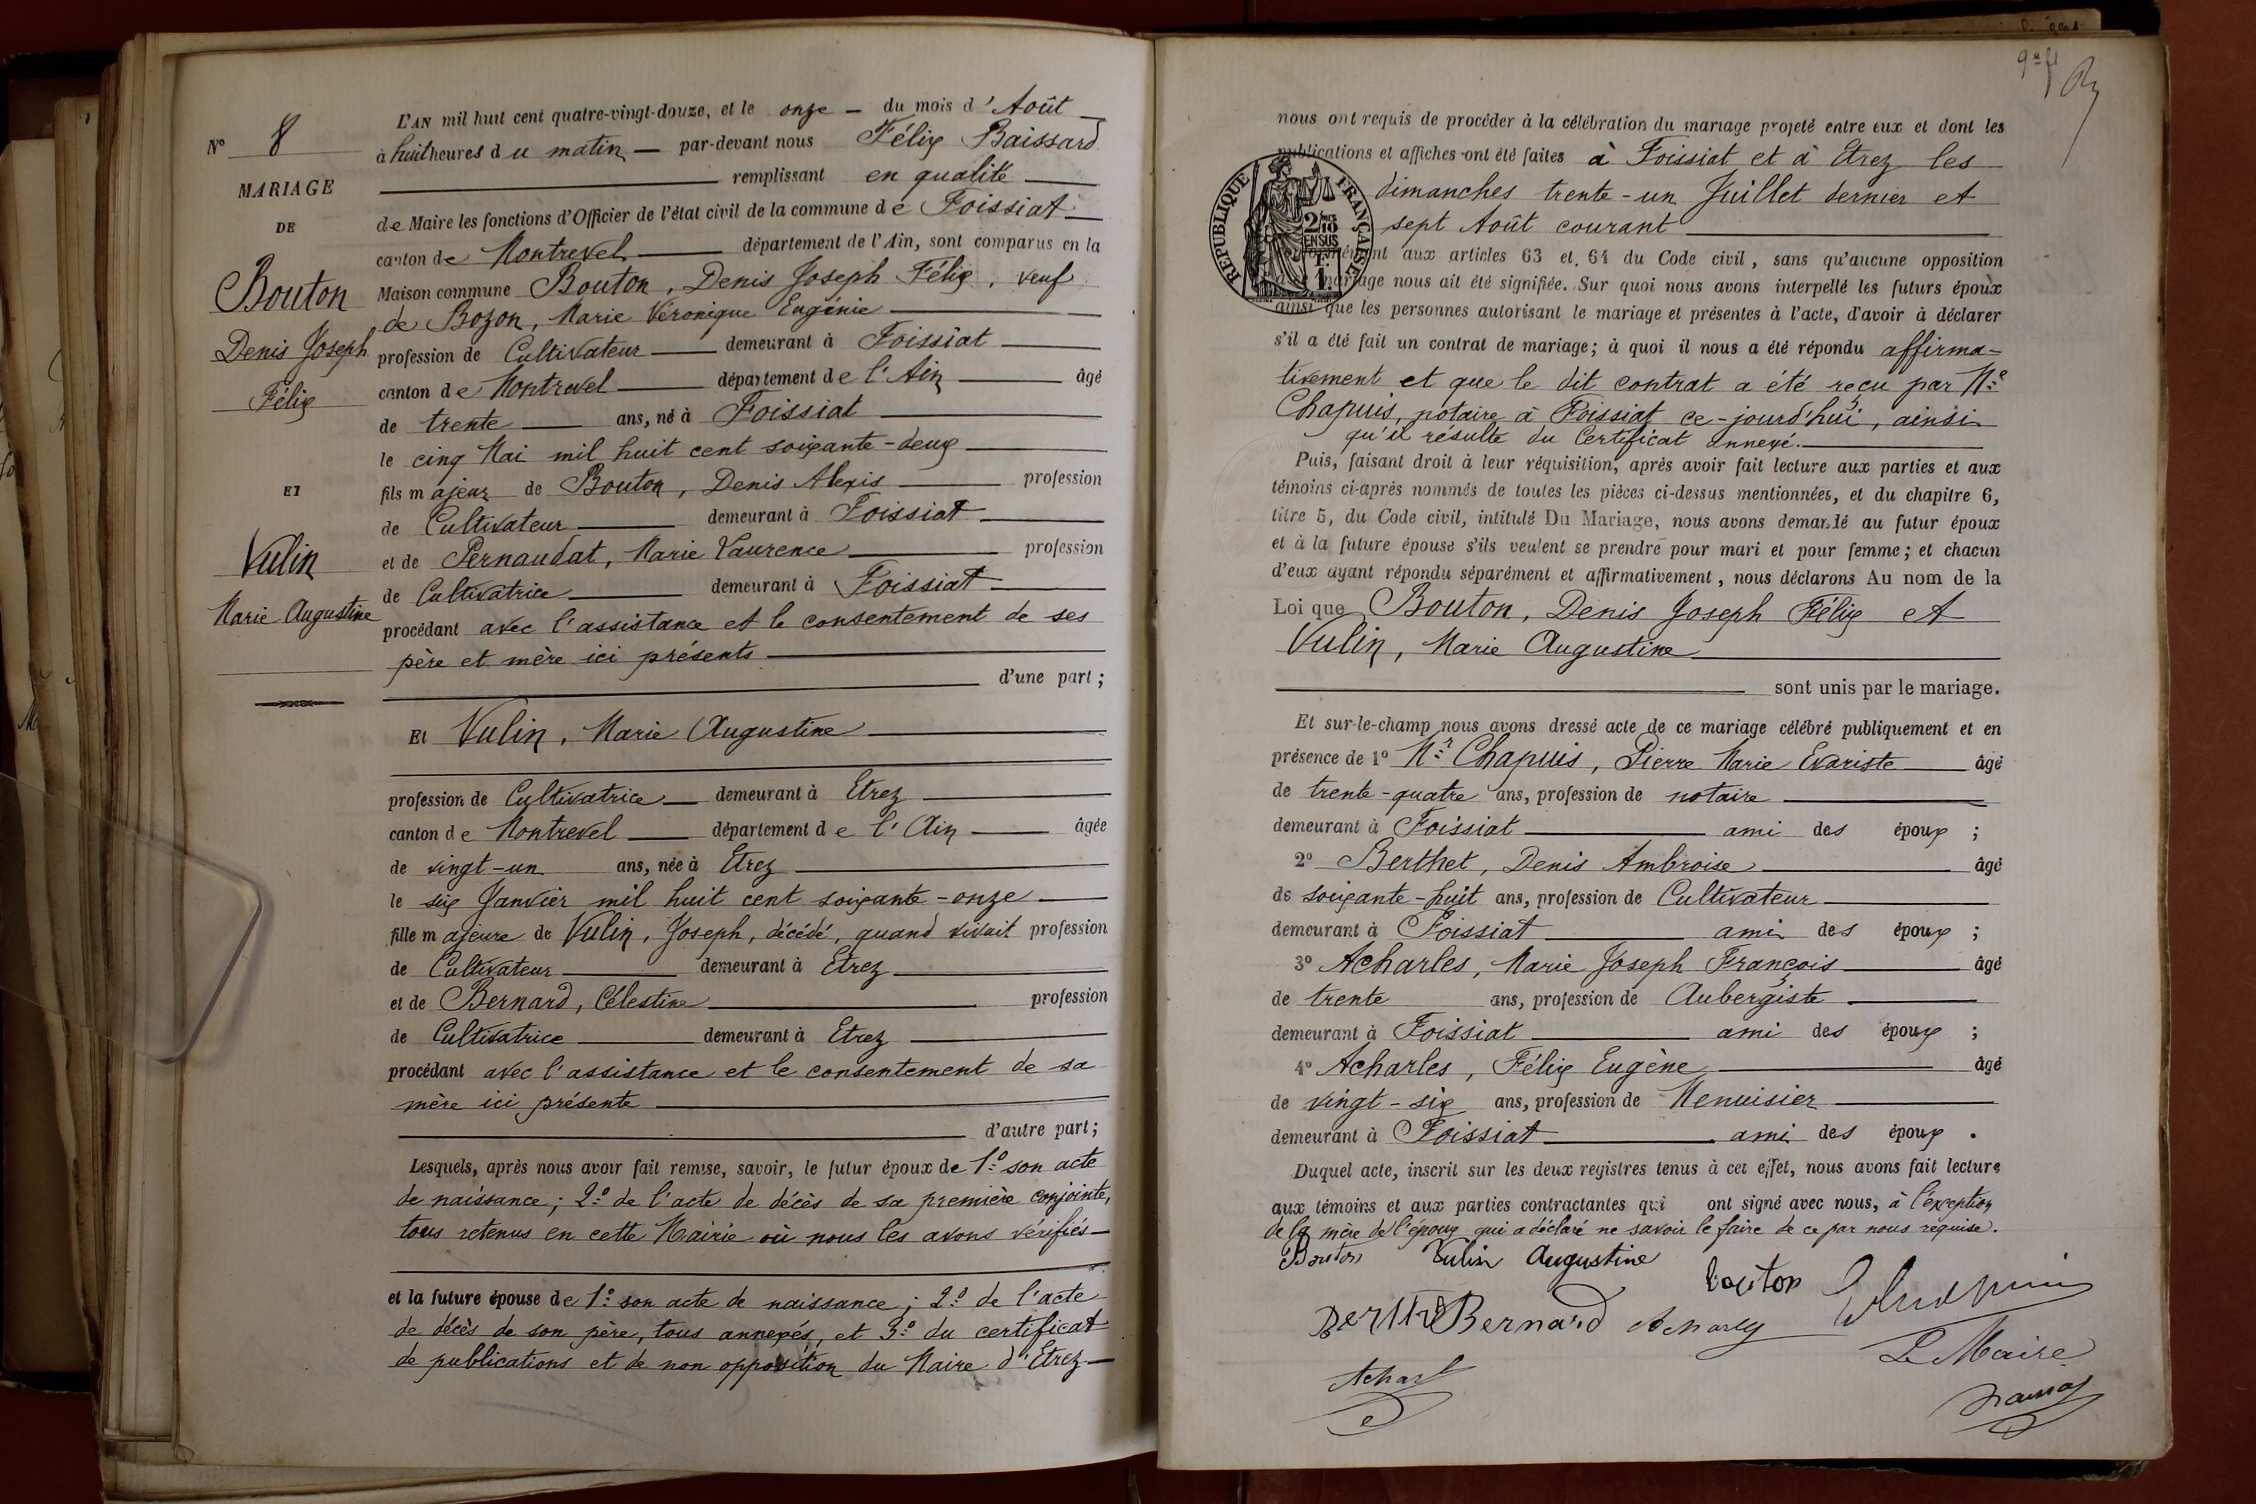 L'AN mil huit cent quatre-vingt-douze, et le onze du mois d'Août
à huit heures du matin par-devant nous Félix Baissard
remplissant en qualité
de Maire les fonctions d'Officier de l'état civil de la commune de Foissiat
canton de Montrevel département de l'Ain, sont comparus en la
Maison commune Bouton, Denis Joseph Félix, veuf
de Bozon, Marie Véronique Eugénie
profession de Cultivateur demeurant à Foissiat
canton de Montrevel département de l'Ain âgé
de trente ans, né à Foissiat
le cinq Mai mil huit cent soixante-deux
fils majeur de Bouton, Denis Alexis profession
de Cultivateur demeurant à Foissiat
et de Pernaudat, Marie Laurence profession
de Cultivatrice demeurant à Foissiat
procédant avec l'assistance et le consentement de ses
père et mère ici présents
d'une part;
Et Vulin, Marie Augustine
profession de Cultivatrice demeurant à Etrez
canton de Montrevel département de l'Ain âgée
de vingt-un ans, née à Etrez
le six Janvier mil huit cent soixante-onze
fille majeure de Vulin, Joseph, décédé, quand vivait profession
de Cultivateur demeurant à Etrez
et de Bernard, Célestine profession
de Cultivatrice demeurant à Etrez
procédant avec l'assistance et le consentement de sa
mère ici présente
d'autre part;
Lesquels, après nous avoir fait remise, savoir, le futur époux de 1º son acte
de naissance; 2º de l'acte de décès de sa première conjointe,
tous retenus en cette Mairie où nous les avons vérifiés
et la future épouse de 1º son acte de naissance; 2º de l'acte
de décès de son père, tous annexés, et 3º du certificat
de publications et de non opposition du Maire d'Etrez
Nº 8
MARIAGE
DE
Bouton
Denis Joseph
Félix
ET
Vulin
Marie Augustine
nous ont requis de procéder à la célébration du mariage projeté entre eux et dont les
publications et affiches ont été faites à Foissiat et à Etrez les
dimanches trente-un Juillet dernier et
sept Août courant
aux articles 63 et 64 du Code civil, sans qu'aucune opposition
mariage nous ait été signifiée. Sur quoi nous avons interpellé les futurs époux
ainsi que les personnes autorisant le mariage et présentes à l'acte, d'avoir à déclarer
s'il a été fait un contrat de mariage; à quoi il nous a été répondu affirma=
tivement et que le dit contrat a été reçu par Me
Chapuis, notaire à Foissiat ce-jourd'hui, ainsi
qu'il résulte du Certificat annexé.
Puis, faisant droit à leur réquisition, après avoir fait lecture aux parties et aux
témoins ci-après nommés de toutes les pièces ci-dessus mentionnées, et du chapitre 6,
titre 5, du Code civil, intitulé Du Mariage, nous avons demandé au futur époux
et à la future épouse s'ils veulent se prendre pour mari et pour femme; et chacun
d'eux ayant répondu séparément et affirmativement, nous déclarons Au nom de la
Loi que Bouton, Denis Joseph Félix et
Vulin, Marie Augustine
sont unis par le mariage.
Et sur-le-champ nous avons dressé acte de ce mariage célébré publiquement et en
présence de 1º Mr Chapuis, Pierre Marie Evariste âgé
de trente-quatre ans, profession de notaire
demeurant à Foissiat ami des époux ;
2º Berthet, Denis Ambroise âgé
de soixante-huit ans, profession de Cultivateur
demeurant à Foissiat ami des époux ;
3º Acharles, Marie Joseph François âgé
de trente ans, profession de Aubergiste
demeurant à Foissiat ami des époux ;
4º Acharles, Félix Eugène âgé
de vingt-six ans, profession de Menuisier
demeurant à Foissiat ami des époux .
Duquel acte, inscrit sur les deux registres tenus à cet effet, nous avons fait lecture
aux témoins et aux parties contractantes qui ont signé avec nous, à l'exception
de la mère de l'époux qui a déclaré ne savoir le faire de ce par nous requise.
Bouton Vulin Augustine
bouton
Bernard
Le Maire
RÉPUBLIQUE FRANÇAISE
2/10
EN SUS